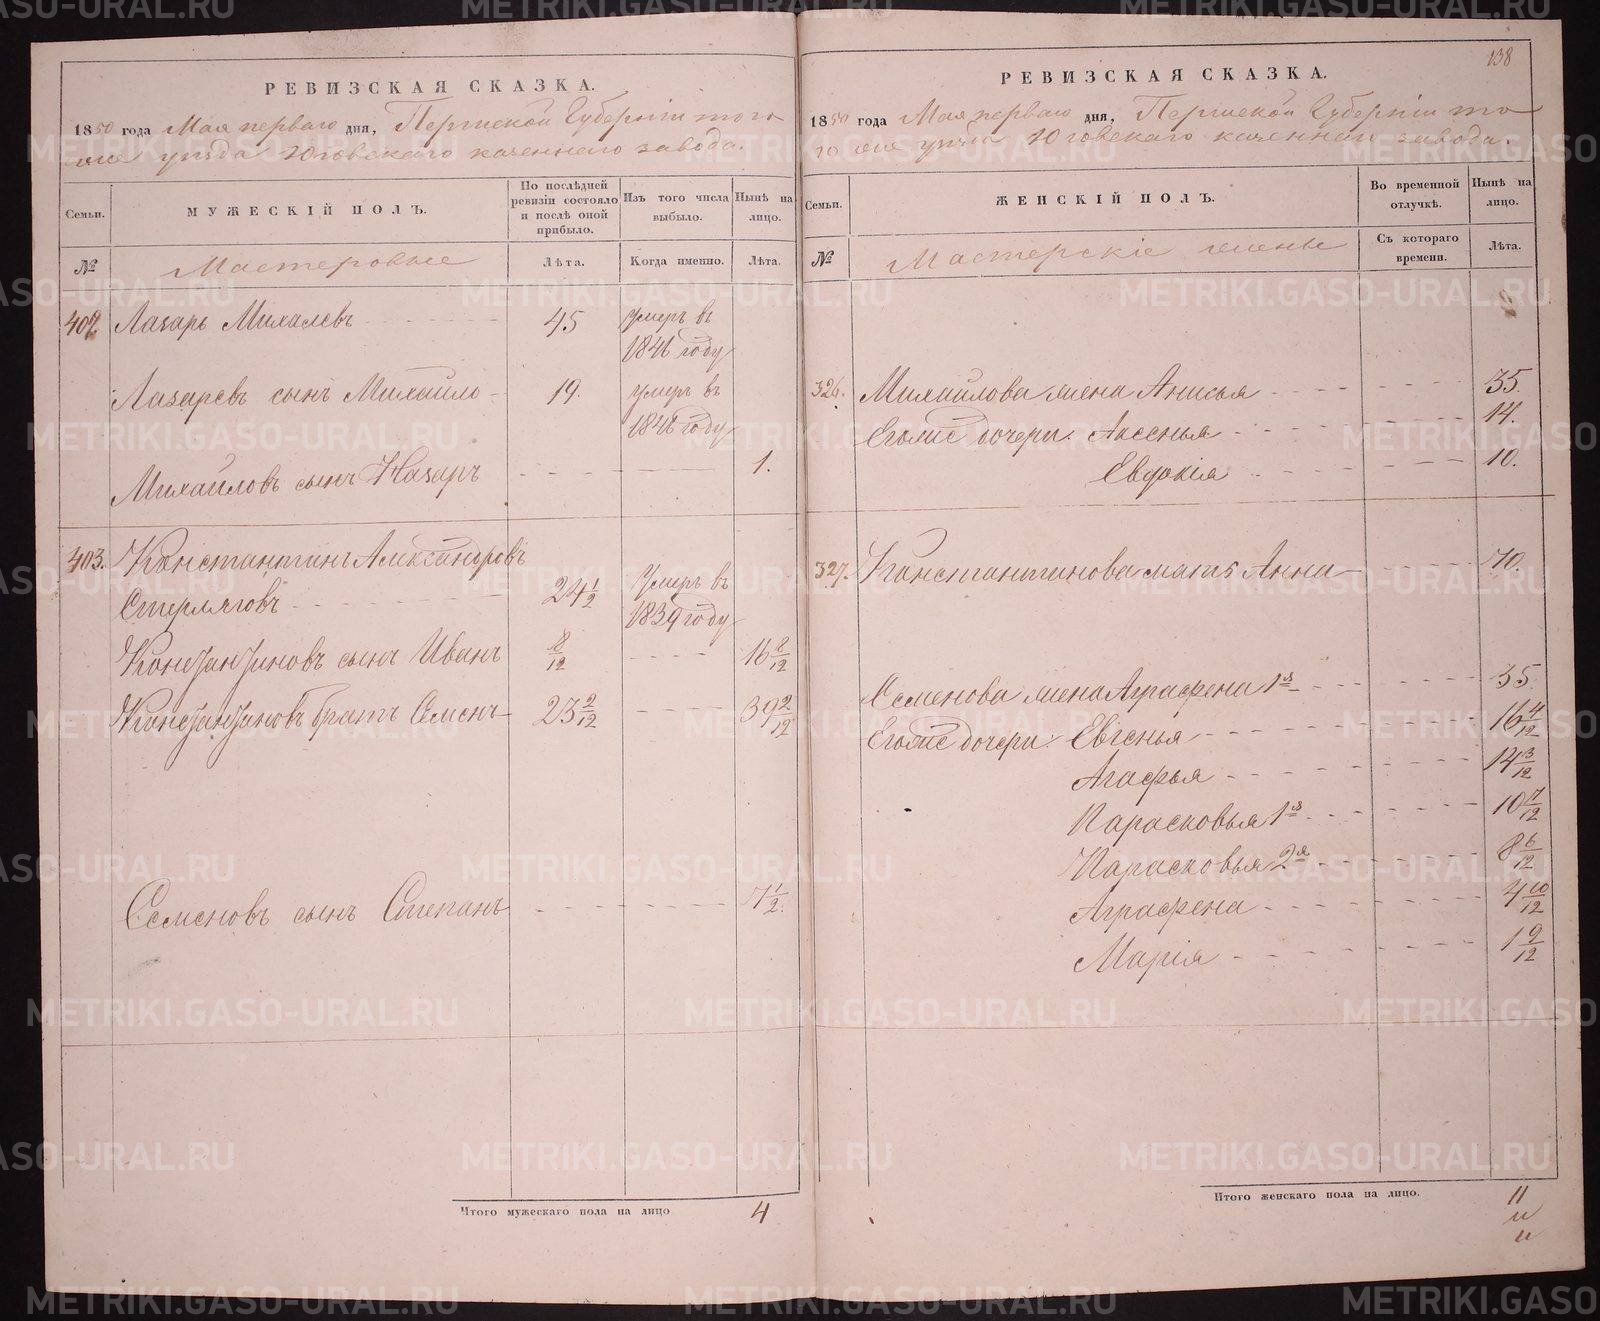 РЕВИЗСКАЯ СКАЗКА.
1850 года Мая перваго дня, Пермской Губерніи того
же уѣзда Юговскаго казеннаго завода.
Семьи.
МУЖЕСКІЙ ПОЛЪ.
По послѣдней ревизіи состояло и послѣ оной прибыло.
Изъ того числа выбыло.
Нынѣ на лицо.
№
Мастеровые
Лѣта.
Когда именно.
Лѣта.
402 Лазарь Михалевъ 45 умеръ въ
1846 году
Лазаревъ сынъ Михайло 19. умеръ въ
1846 году
Михайловъ сынъ Назаръ 1.
403. Константинъ Александровъ
Стерляговъ 24 1/2 Умеръ въ
1839 году
Константиновъ сынъ Иванъ 8/12 16 8/12
Константиновъ братъ Семенъ 23 2/12 39 2/12
Семеновъ сынъ Степанъ 7 1/2.
Итого мужескаго пола на лицо 4
138
РЕВИЗСКАЯ СКАЗКА.
1850 года Мая перваго дня, Пермской Губерніи то
го же уѣзда Юговскаго казеннаго завода.
Семьи.
ЖЕНСКІЙ ПОЛЪ.
Во временной отлучкѣ.
Нынѣ на лицо.
№
Мастерскіе жены
Съ котораго времени.
Лѣта.
326. Михайлова жена Анисья 35.
Егоже дочери: Аксенья 14.
Евдокія 10.
327. Константинова мать Анна 70.
Семенова жена Аграфена 1я 35
Егоже дочери: Евгенья 16 4/12
Агафья 14 3/12
Парасковья 1я 10 7/12
Парасковья 2я 8 6/12
Аграфена 4 10/12
Марія 1 9/12
Итого женскаго пола на лицо. 11
METRIKI.GASO-URAL.RU